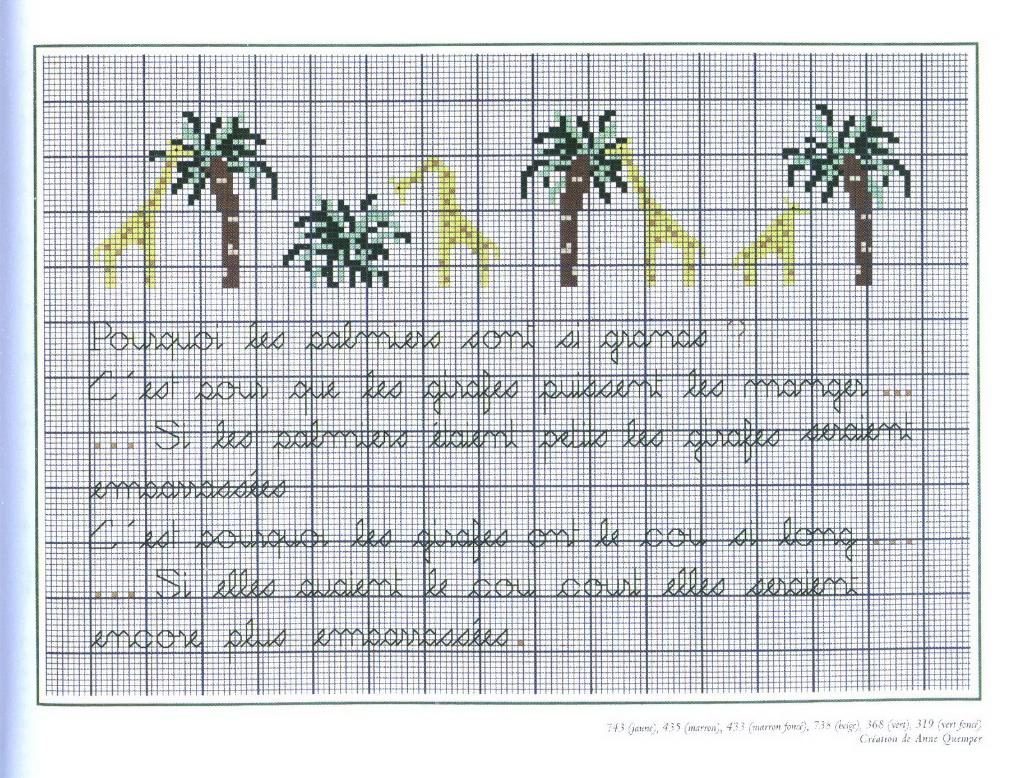 Pourquoi les palmiers sont si grands ?
C'est pour que les girafes puissent les manger ...
... Si les palmiers étaient petits les girafes seraient
embarrassées
C'est pourquoi les girafes ont le cou si long ...
... Si elles avaient le cou court elles seraient
encore plus embarrassées.
743 (jaune), 435 (marron), 433 (marron foncé), 738 (beige), 368 (vert), 319 (vert foncé)
Création de Anne Quemper